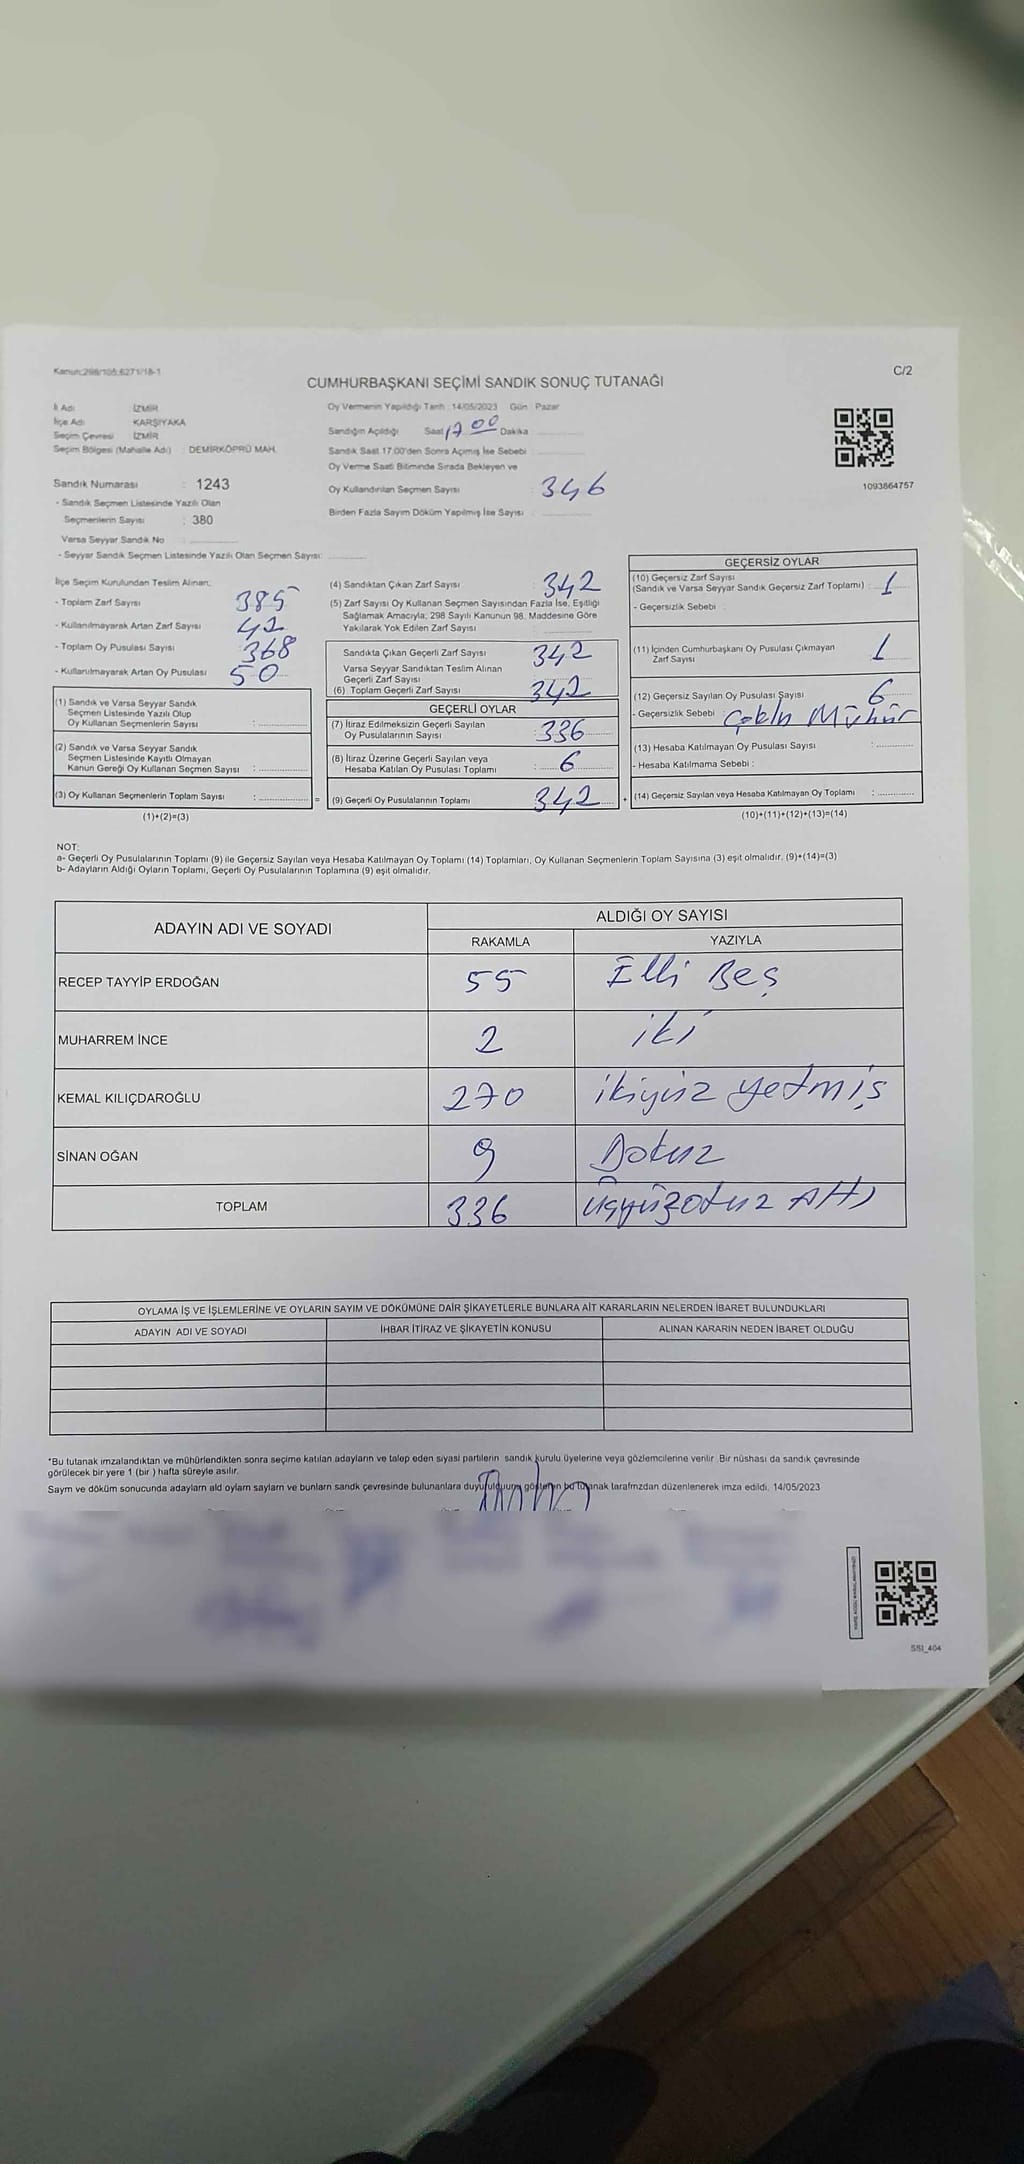 Kanun:298/105;6271/18-1
C/2
CUMHURBAŞKANI SEÇİMİ SANDIK SONUÇ TUTANAĞI
İl Adı İZMİR
İlçe Adı KARŞIYAKA
Seçim Çevresi İZMİR
Seçim Bölgesi (Mahalle Adı) : DEMİRKÖPRÜ MAH.
Sandık Numarası : 1243
- Sandık Seçmen Listesinde Yazılı Olan
Seçmenlerin Sayısı : 380
Varsa Seyyar Sandık No :
- Seyyar Sandık Seçmen Listesinde Yazılı Olan Seçmen Sayısı:
Oy Vermenin Yapıldığı Tarih : 14/05/2023 Gün : Pazar
Sandığın Açıldığı Saat 17 00 Dakika
Sandık Saat 17.00'den Sonra Açımış İse Sebebi :
Oy Verme Saati Bitiminde Sırada Bekleyen ve
Oy Kullandırılan Seçmen Sayısı : 346
Birden Fazla Sayım Döküm Yapılmış İse Sayısı :
1093864757
İlçe Seçim Kurulundan Teslim Alınan;
- Toplam Zarf Sayısı 385
- Kullanılmayarak Artan Zarf Sayısı 42
- Toplam Oy Pusulası Sayısı 368
- Kullanılmayarak Artan Oy Pusulası 50
(1) Sandık ve Varsa Seyyar Sandık
Seçmen Listesinde Yazılı Olup
Oy Kullanan Seçmenlerin Sayısı :
(2) Sandık ve Varsa Seyyar Sandık
Seçmen Listesinde Kayıtlı Olmayan
Kanun Gereği Oy Kullanan Seçmen Sayısı :
(3) Oy Kullanan Seçmenlerin Toplam Sayısı : =
(1)+(2)=(3)
(4) Sandıktan Çıkan Zarf Sayısı : 342
(5) Zarf Sayısı Oy Kullanan Seçmen Sayısından Fazla İse, Eşitliği
Sağlamak Amacıyla, 298 Sayılı Kanunun 98. Maddesine Göre
Yakılarak Yok Edilen Zarf Sayısı
Sandıkta Çıkan Geçerli Zarf Sayısı 342
Varsa Seyyar Sandıktan Teslim Alınan
Geçerli Zarf Sayısı
(6) Toplam Geçerli Zarf Sayısı 342
GEÇERLİ OYLAR
(7) İtiraz Edilmeksizin Geçerli Sayılan
Oy Pusulalarının Sayısı : 336
(8) İtiraz Üzerine Geçerli Sayılan veya
Hesaba Katılan Oy Pusulası Toplamı : 6
(9) Geçerli Oy Pusulalarının Toplamı 342 +
GEÇERSİZ OYLAR
(10) Geçersiz Zarf Sayısı
(Sandık ve Varsa Seyyar Sandık Geçersiz Zarf Toplamı) : 1
- Geçersizlik Sebebi :
(11) İçinden Cumhurbaşkanı Oy Pusulası Çıkmayan
Zarf Sayısı 1
(12) Geçersiz Sayılan Oy Pusulası Sayısı 6
- Geçersizlik Sebebi : Mühür
(13) Hesaba Katılmayan Oy Pusulası Sayısı :
- Hesaba Katılmama Sebebi :
(14) Geçersiz Sayılan veya Hesaba Katılmayan Oy Toplamı :
(10)+(11)+(12)+(13)=(14)
NOT:
a- Geçerli Oy Pusulalarının Toplamı (9) ile Geçersiz Sayılan veya Hesaba Katılmayan Oy Toplamı (14) Toplamları, Oy Kullanan Seçmenlerin Toplam Sayısına (3) eşit olmalıdır. (9)+(14)=(3)
b- Adayların Aldığı Oyların Toplamı, Geçerli Oy Pusulalarının Toplamına (9) eşit olmalıdır.
ADAYIN ADI VE SOYADI ALDIĞI OY SAYISI
RAKAMLA YAZIYLA
RECEP TAYYİP ERDOĞAN 55 Elli Beş
MUHARREM İNCE 2 iki
KEMAL KILIÇDAROĞLU 270 ikiyüz yetmiş
SİNAN OĞAN 9 Dokuz
TOPLAM 336 üçyüzotuz Altı
OYLAMA İŞ VE İŞLEMLERİNE VE OYLARIN SAYIM VE DÖKÜMÜNE DAİR ŞİKAYETLERLE BUNLARA AİT KARARLARIN NELERDEN İBARET BULUNDUKLARI
ADAYIN ADI VE SOYADI İHBAR İTİRAZ VE ŞİKAYETİN KONUSU ALINAN KARARIN NEDEN İBARET OLDUĞU
*Bu tutanak imzalandıktan ve mühürlendikten sonra seçime katılan adayların ve talep eden siyasi partilerin sandık kurulu üyelerine veya gözlemcilerine verilir .Bir nüshası da sandık çevresinde
görülecek bir yere 1 (bir ) hafta süreyle asılır.
Sayım ve döküm sonucunda adayların ald oyların sayların ve bunların sandk çevresinde bulunanlara duyurulduğunu gösteren bu tutanak tarafmzdan düzenlenerek imza edildi. 14/05/2023
SSI_404